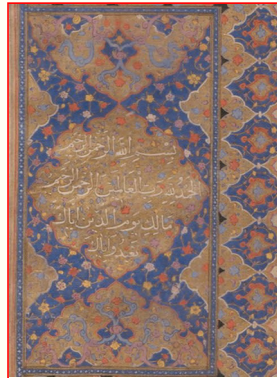 بسم الله الرحمن الرحيم
الحمد لله رب العالمين الرحمن الرحيم
مالك يوم الدين اياك
نعبد واياك